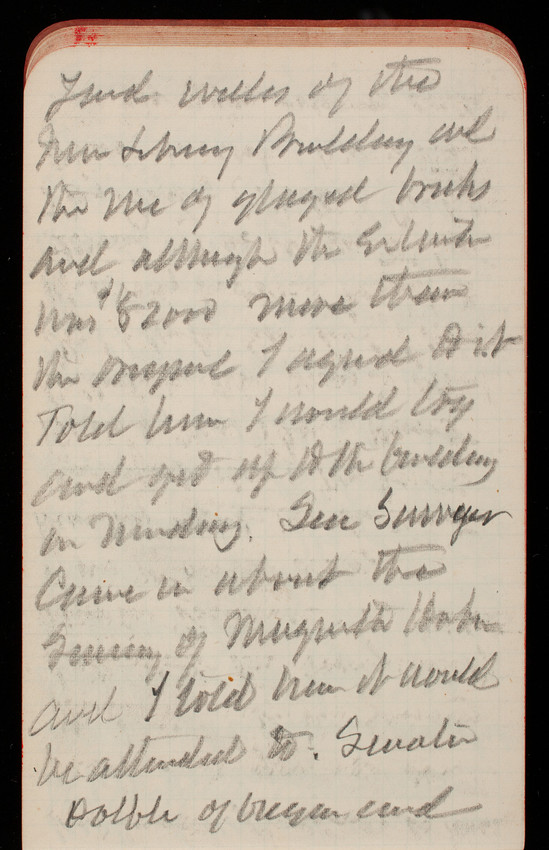 walls of the
New Library Building and
the use of glazed bricks
and although the Estimate
was $ 2000 more than
the original I agreed to it
Told him I would try
and go up to the building
on Monday. Gen Sawyer
Came in about the
Survey of
and I told him it would
be attended to. Senator
Dolph of Oregon and